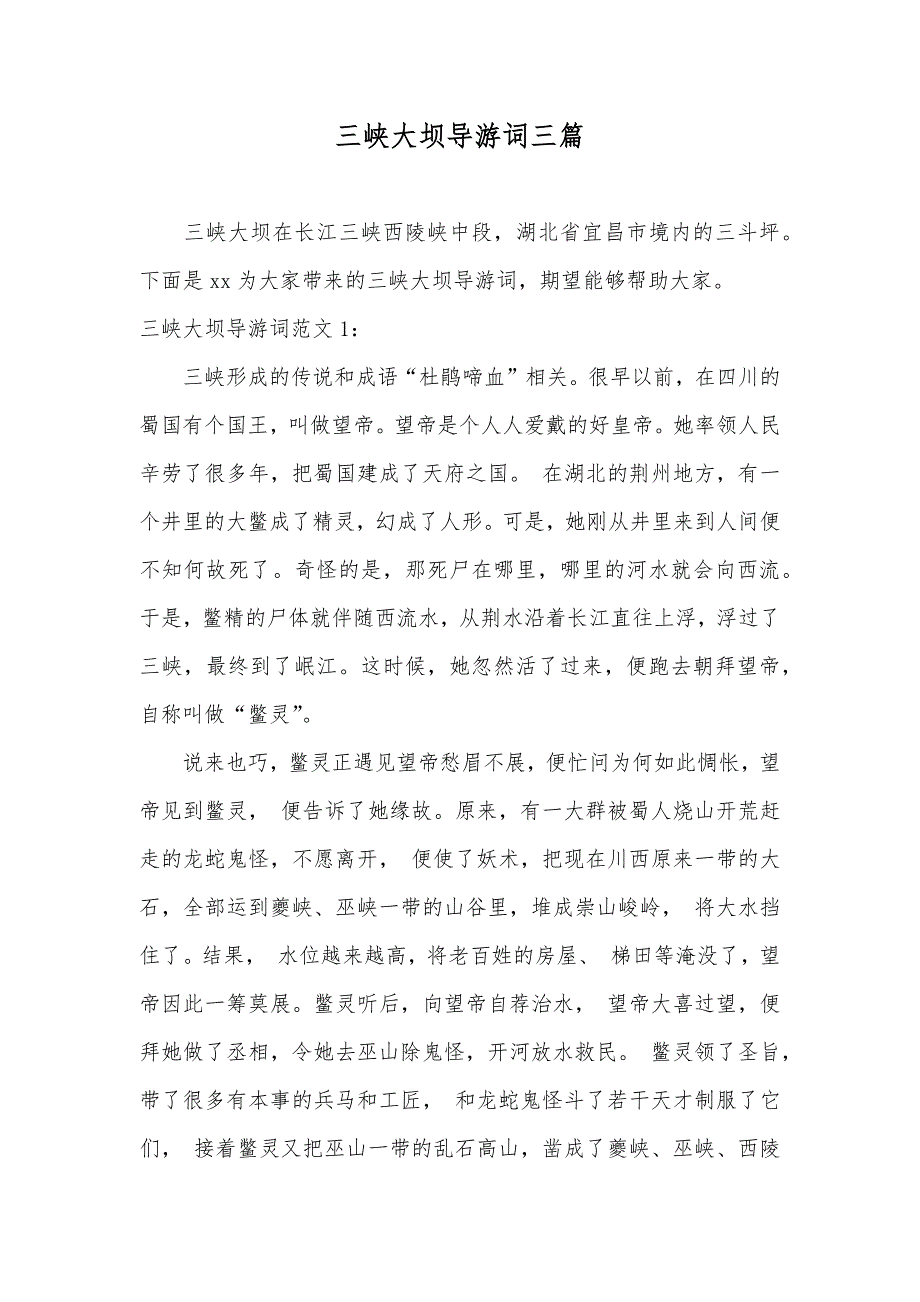 三峡大坝导游词三篇
三峡大坝在长江三峡西陵峡中段，湖北省宜昌市境内的三斗坪。
下面是 xx 为大家带来的三峡大坝导游词，期望能够帮助大家。
三峡大坝导游词范文 1：
三峡形成的传说和成语“杜鹃啼血”相关。很早以前，在四川的
蜀国有个国王，叫做望帝。望帝是个人人爱戴的好皇帝。她率领人民
辛劳了很多年，把蜀国建成了天府之国。 在湖北的荆州地方，有一
个井里的大鳖成了精灵，幻成了人形。可是，她刚从井里来到人间便
不知何故死了。奇怪的是，那死尸在哪里，哪里的河水就会向西流。
于是，鳖精的尸体就伴随西流水，从荆水沿着长江直往上浮，浮过了
三峡，最终到了岷江。这时候，她忽然活了过来，便跑去朝拜望帝，
自称叫做“鳖灵”。
说来也巧，鳖灵正遇见望帝愁眉不展，便忙问为何如此惆怅，望
帝见到鳖灵， 便告诉了她缘故。原来，有一大群被蜀人烧山开荒赶
走的龙蛇鬼怪，不愿离开， 便使了妖术，把现在川西原来一带的大
石，全部运到夔峡、巫峡一带的山谷里，堆成崇山峻岭， 将大水挡
住了。结果， 水位越来越高，将老百姓的房屋、 梯田等淹没了，望
帝因此一筹莫展。鳖灵听后，向望帝自荐治水， 望帝大喜过望，便
拜她做了丞相，令她去巫山除鬼怪，开河放水救民。 鳖灵领了圣旨，
带了很多有本事的兵马和工匠， 和龙蛇鬼怪斗了若干天才制服了它
们， 接着鳖灵又把巫山一带的乱石高山，凿成了夔峡、巫峡、西陵